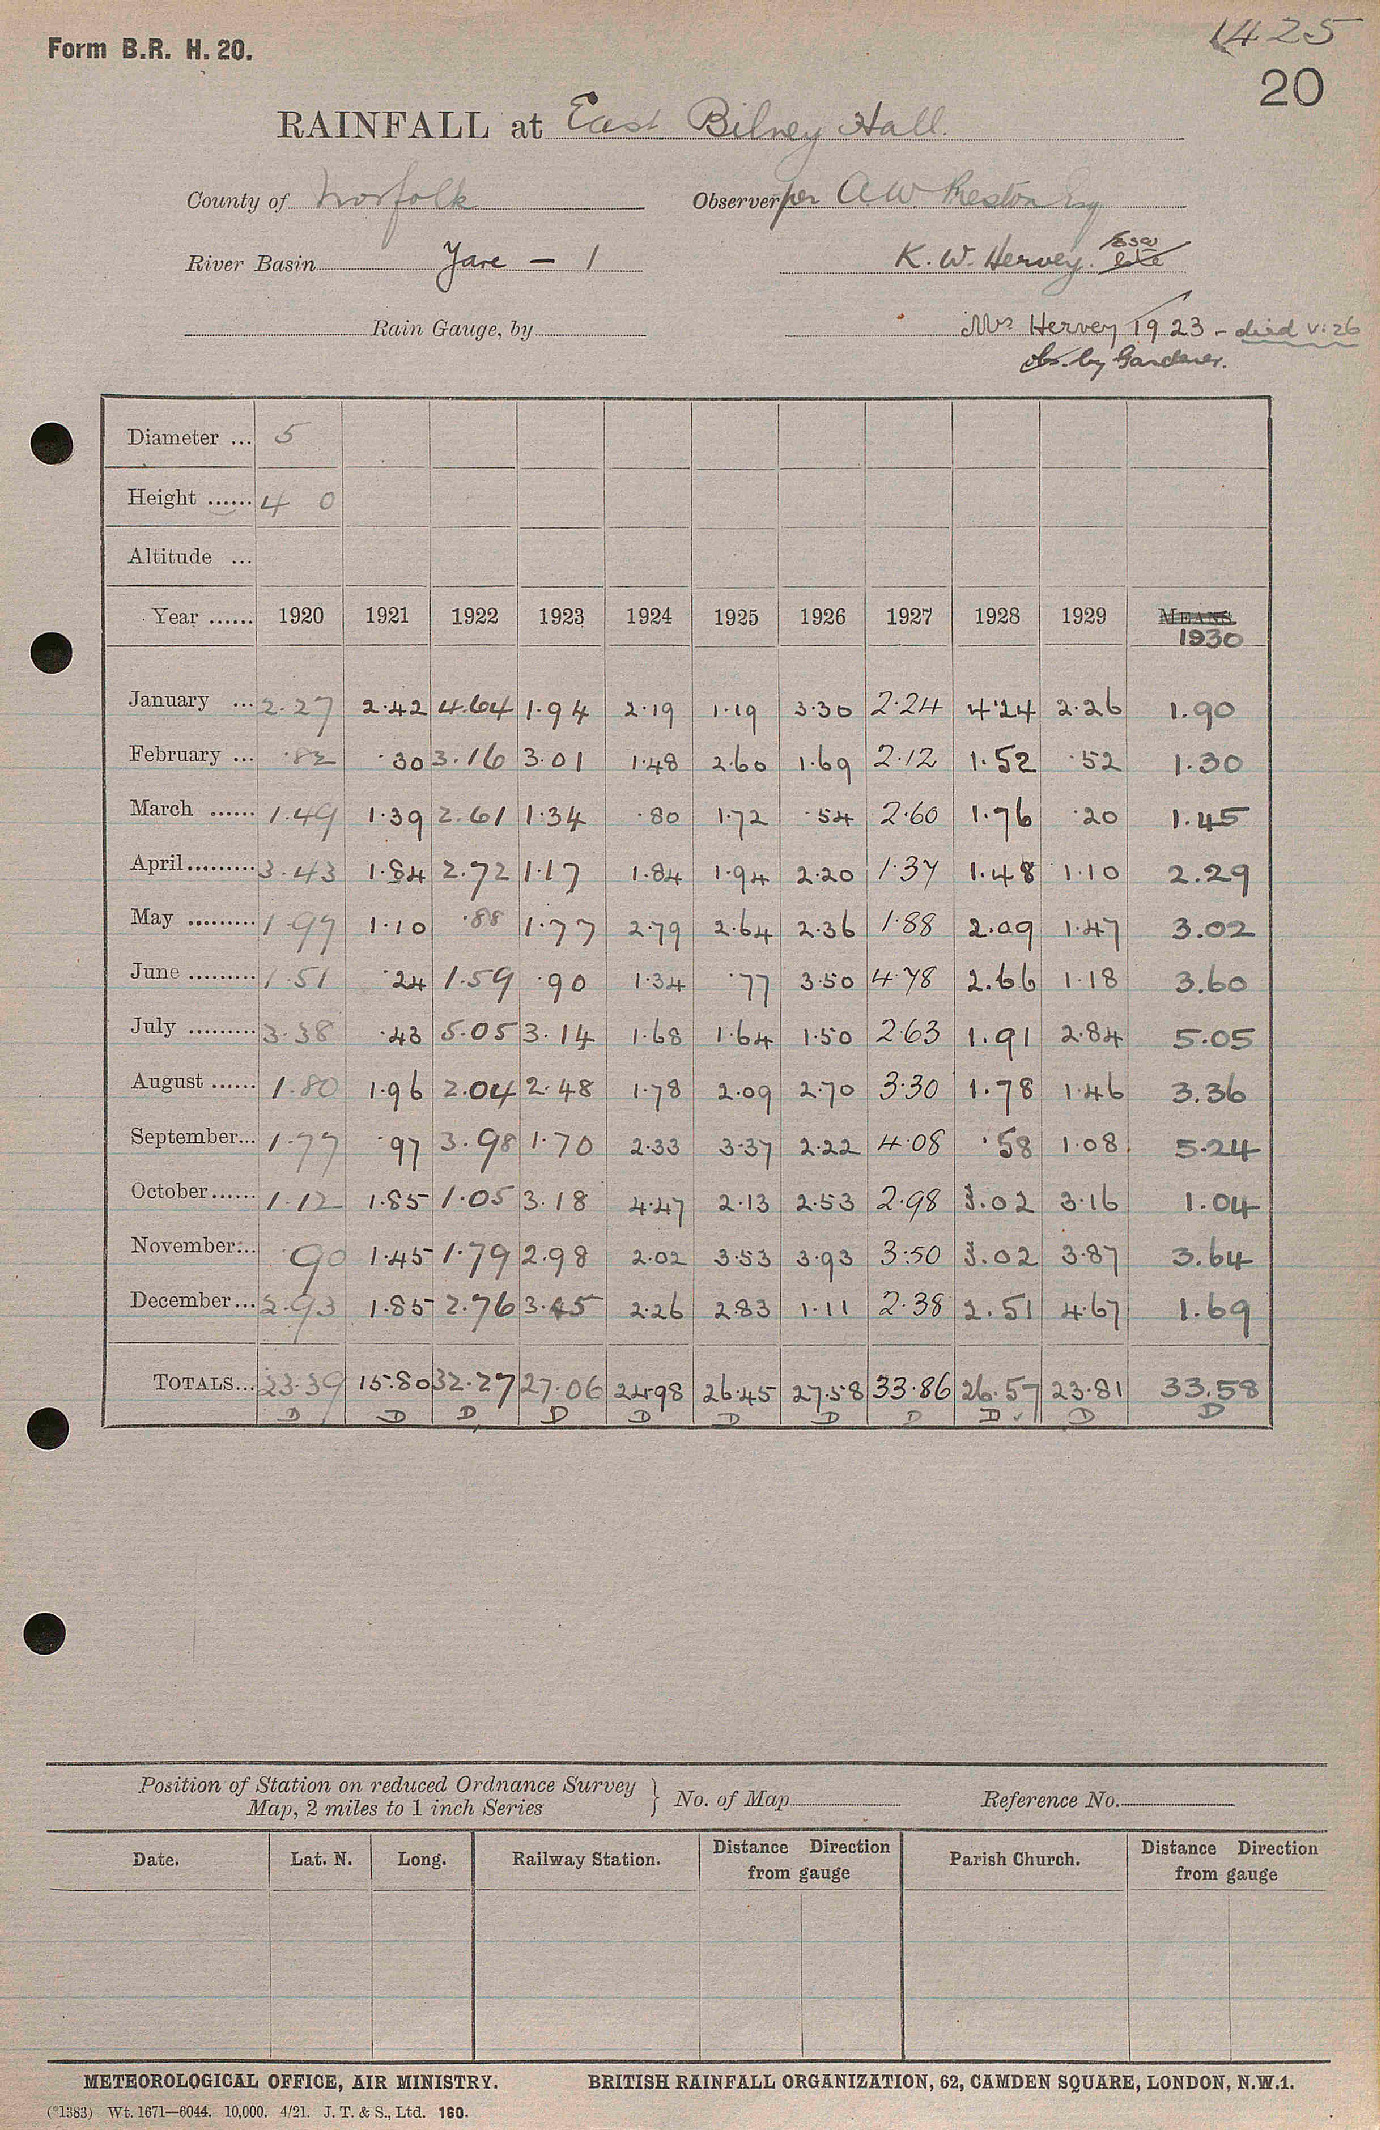 1425
Form B.R. H. 20.
20
RAINFALL at East Bilney Hall.
County of Norfolk Observer per A W Preston Esq
River Basin Yare - 1 K. W. Hervey. Esq
Rain Gauge, by Mrs Hervey 1923 - died V. 26
obs. by Gardener.
Diameter ... 5
Height ...... 4 0
Altitude ...
Year ...... 1920 1921 1922 1923 1924 1925 1926 1927 1928 1929 MEANS
1930
January ... 2.27 2.42 4.64 1.94 2.19 1.19 3.30 2.24 4.24 2.26 1.90
February ... .82 .30 3.16 3.01 1.48 2.60 1.69 2.12 1.52 .52 1.30
March ...... 1.49 1.39 2.61 1.34 .80 1.72 .54 2.60 1.76 .20 1.45
April ......... 3.43 1.84 2.72 1.17 1.84 1.94 2.20 1.37 1.48 1.10 2.29
May ......... 1.97 1.10 .88 1.77 2.79 2.64 2.36 1.88 2.09 1.47 3.02
June ......... 1.51 .24 1.59 .90 1.34 .77 3.50 4.78 2.66 1.18 3.60
July ......... 3.38 .43 5.05 3.14 1.68 1.64 1.50 2.63 1.91 2.84 5.05
August ...... 1.80 1.96 2.04 2.48 1.78 2.09 2.70 3.30 1.78 1.46 3.36
September... 1.77 .97 3.98 1.70 2.33 3.37 2.22 4.08 .58 1.08 5.24
October ...... 1.12 1.85 1.05 3.18 4.47 2.13 2.53 2.98 3.02 3.16 1.04
November... .90 1.45 1.79 2.98 2.02 3.53 3.93 3.50 3.02 3.87 3.64
December ... 2.93 1.85 2.76 3.45 2.26 2.83 1.11 2.38 2.51 4.67 1.69
TOTALS... 23.39 15.80 32.27 27.06 24.98 26.45 27.58 33.86 26.57 23.81 33.58
D D D D D D D D D ✓ D D
Position of Station on reduced Ordnance Survey
Map, 2 miles to 1 inch Series } No. of Map Reference No.
Date. Lat. N. Long. Railway Station. Distance Direction from gauge Parish Church. Distance Direction from gauge
METEOROLOGICAL OFFICE, AIR MINISTRY. BRITISH RAINFALL ORGANIZATION, 62, CAMDEN SQUARE, LONDON, N.W.1.
(*1383) Wt. 1671—6044. 10,000. 4/21. J. T. & S., Ltd. 160.